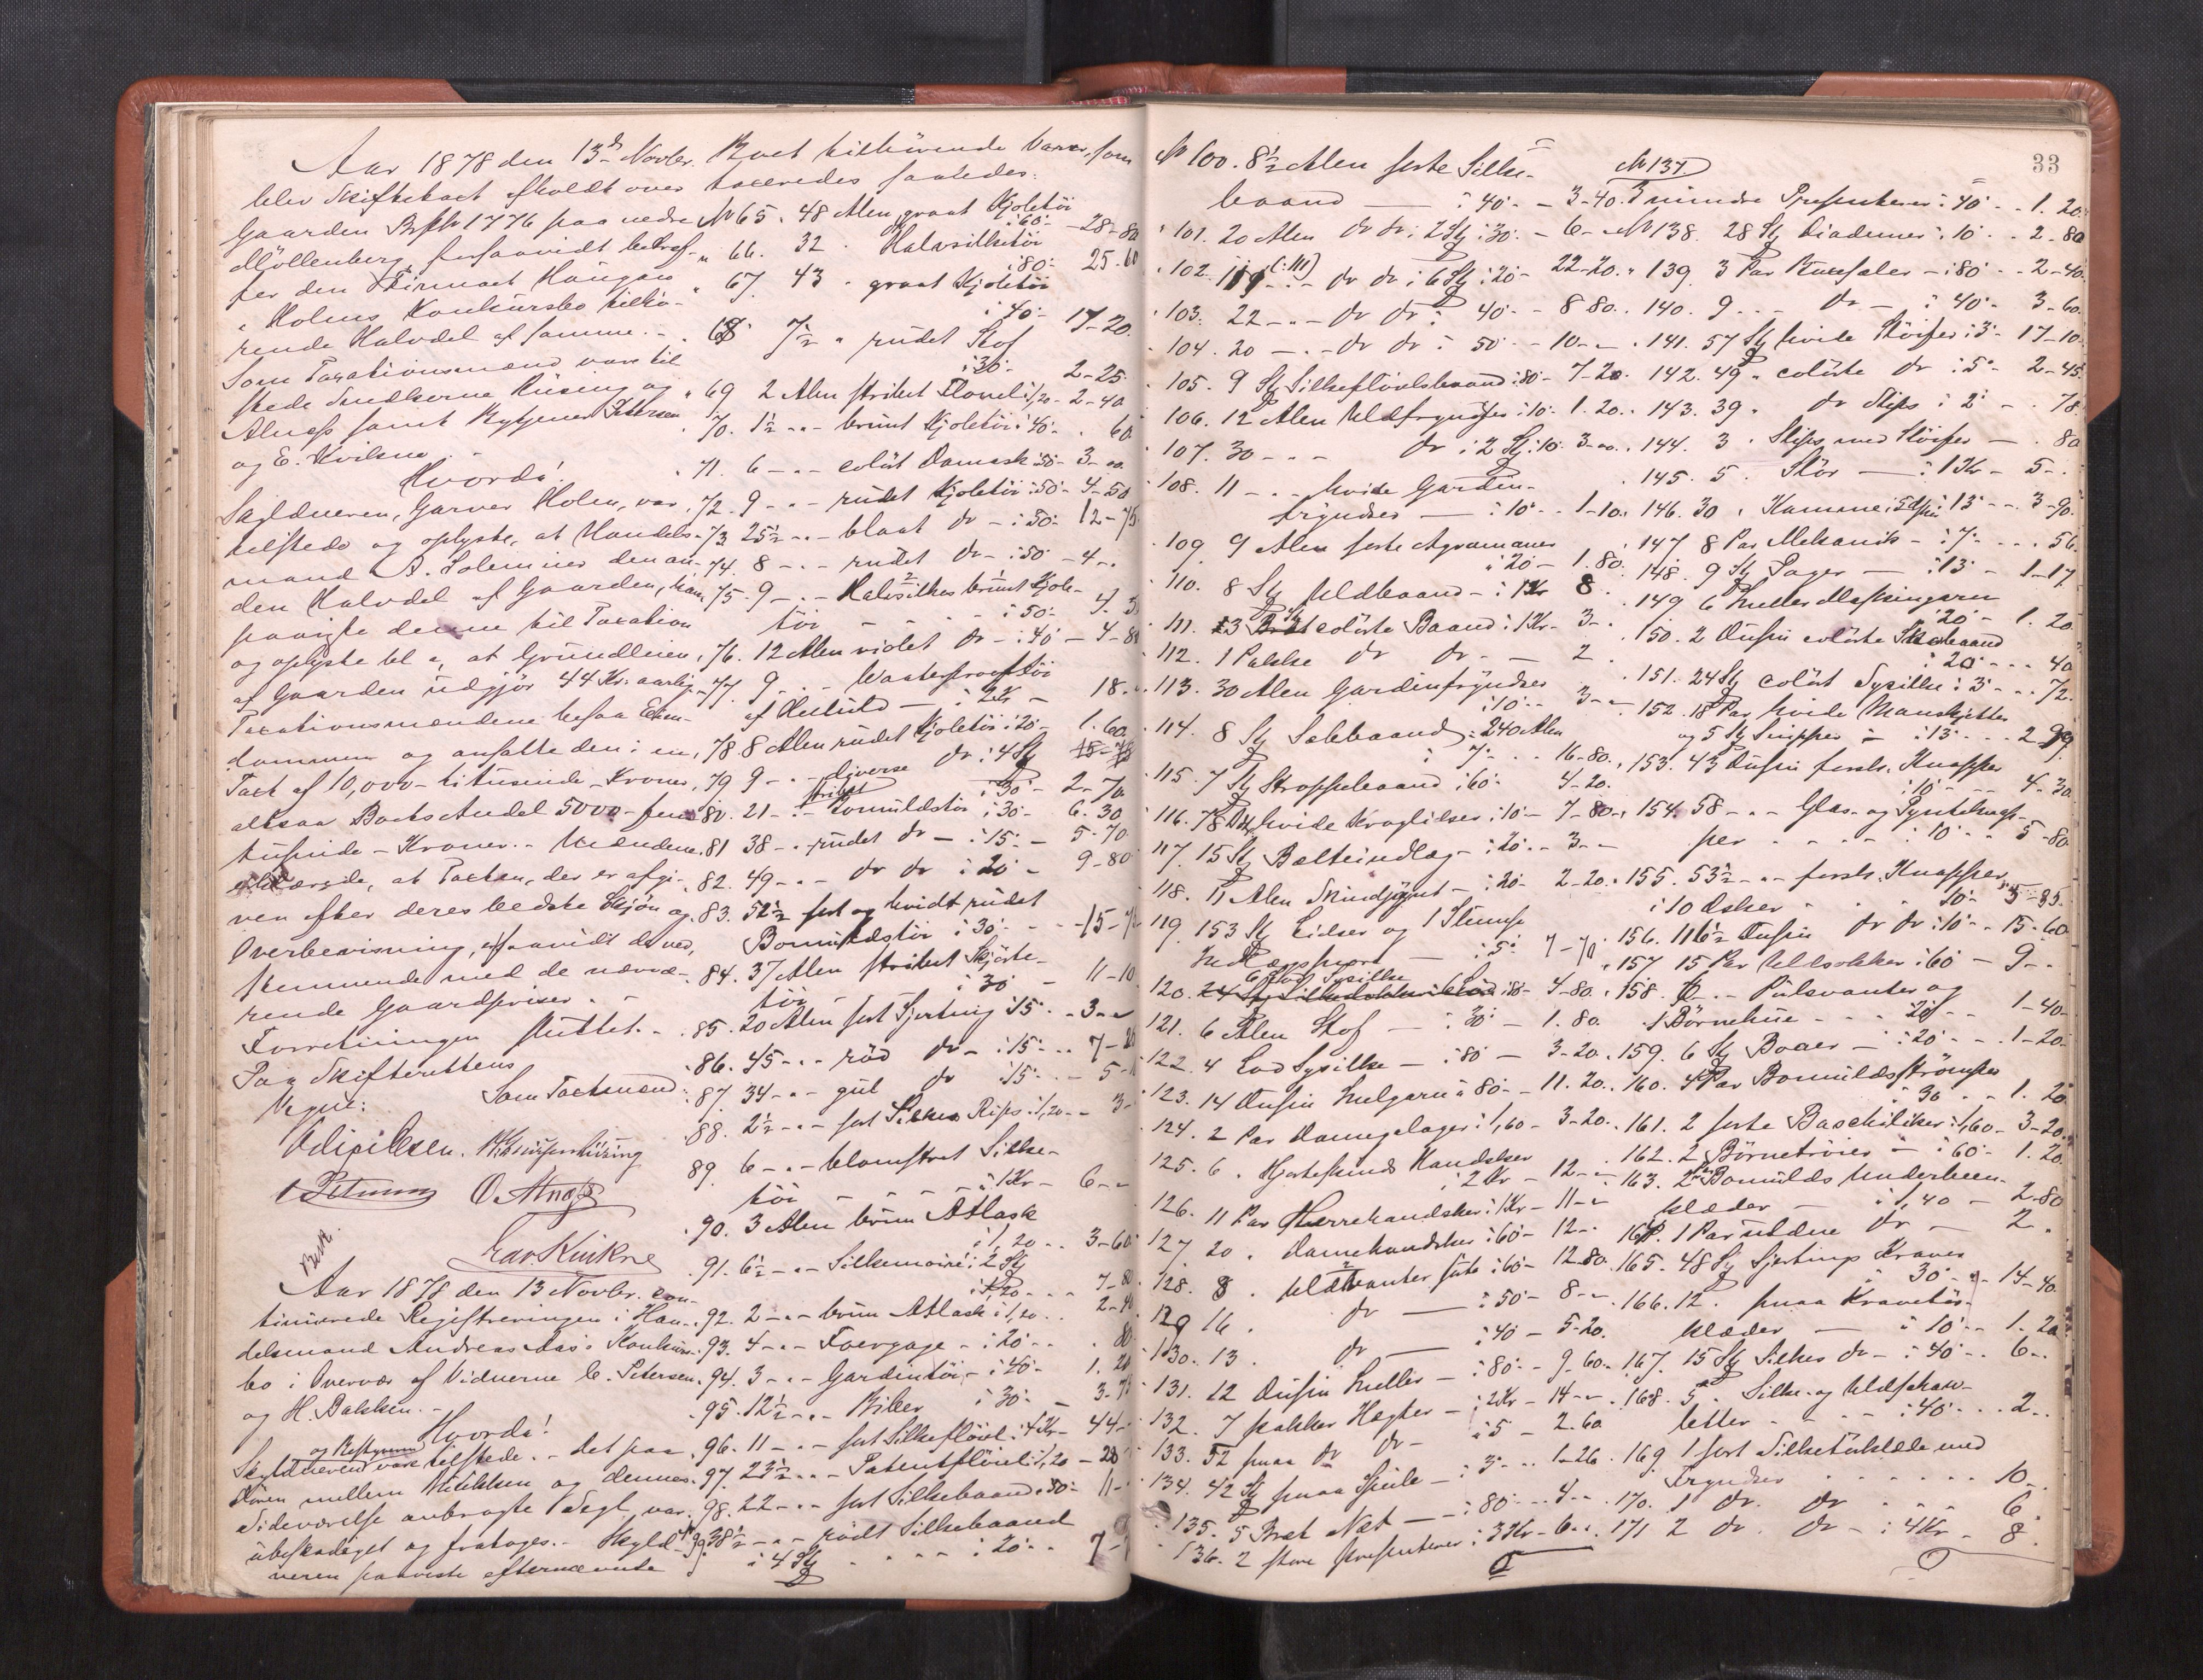 Aar 1878 den 13de Novbr.
blev Skiftetaxt afholdt over
Gaarden Br № 1776 paa nedre
Möllenberg, forsaavidt betræf-
fer den Firmaet Haugan
& Holms Konkursbo tilhö-
rende Halvdel af samme. -
Som Taxationsmænd vare til
stede Snedkerne Rüsing og
Alnæss samt Bygmester Petersen
og E. Kvikne. -
Hvorda!
Skyldneren, Garver Holm, var
tilstede og oplyste, at Handels-
mand A. Solem eier den an-
den Halvdel af Gaarden, han
paaviste denne til Taxation
og oplyste bl. a, at Grundleien
af Gaarden udgjör 44 Kr. aarlig.
Taxationsmændene besaa Eien-
dommen og ansatte den i en
Taxt af 10,000 - titusinde - Kroner,
altsaa Boets Andel 5000 - fem
tusinde - Kroner. - Mændene
erklærede, at Taxten, der er afgi-
ven efter deres bedste Skjön og
Overbevisning, er
stemmende med de nærvæ-
rende Gaardpriser. -
Forretningen sluttet. -
Paa Skifterettens
Vegne: Som Taxtmænd:
O. Alnæss
Edv. Kvikne
Aar 1878 den 13 Novbr. con-
tinuerede Registreringen i Han-
delsmand Andreas Aas's Konkurs-
bo i Overvær af Vidnerne C. Petersen
og H. Bakken. -
Hvorda!
Skyldneren og Bestyreren vare tilstede. - Det paa
Dören mellem Butikken og dennes
Sideværelse anbragte Segl var
ubeskadiget og fratoges. - Skyld-
neren paaviste efternævnte
Boet tilhörende Varer, som
taxeredes saaledes:
№ 65. 48 Alen graat Kjoletöi
à 60 - 28-80
" 66. 32 " Halvsilketöi
à 80 25-60
" 67. 43 " graat Kjoletöi
à 40 - 17-20
" 68 7½ " rudet Stof
à 30 - 2-25
" 69 2 Alen stribet Flovel à 1,20 - 2-40
" 70. 1½ - " - brunt Kjoletöi à 40 - 60
" 71. 6 - " - colört Damask à 50 - 3-00
" 72. 9 - " - rudet Kjoletöi à 50 - 4-50
" 73 25½ - " - blaat do - à 50 - 12-75
" 74. 8 - " - rudet do - à 50 - 4 -
" 75. 9 - " - Halvsilkes brunt Kjole-
töi - - - à 50 - 4. 50
" 76. 12 Alen violet do - à 40 - 4-80
" 77. 9 - " - Waaterprooftöi
af - à 2 Kr - 18. -
" 78. 8 Alen rudet Kjoletöi à 20 - 1. 60
" 79 9 - " - diverse do i 4 St
à 30 - 2-70
" 80. 21 - " - stribet Bomuldstöi à 30 - 6. 30
" 81 38 - " - rudet do - à 15 - 5-70
" 82. 49 - " - do do à 20 - 9-80
" 83. 52½ sort og hvidt rudet
Bomuldstöi à 30 - - - 15-75
" 84. 37 Alen stribet Skjörte-
töi - à 30 - 11-10
" 85. 20 Alen sort Sjerting à 15 - 3 -
" 86. 45 - " - röd do - à 15 - -
" 87 34 - " - gul do à 15 - - 5-10
" 88. 2½ - " - sort Silkes Rips à 1,20 - 3 -
" 89. 6 - " - blomstret Silke-
töi - - - - à 1 Kr - 6 -
" 90. 3 Alen brun Atlask
à 1,20 - - 3-60
" 91. 6½ - " - Silkemoiré i 2 St
à 1,20 - - - 7-80
" 92. 2 - " - brun Atlask à 1,20 - - 2-40
" 93. 4 - " - Foergaze - à 20 - - 80
" 94. 3 - " - Gardintöi - à 40 - 1. 20
" 95. 12½ - " - Biber à 30 - 3-75
" 96. 11 - " - sort Silkeflöiel à 4 Kr - 44 -
" 97. 23½ - " - Patentflöiel à 1,20 - 28
" 98. 22 - " - sort Silkebaand à 50 - 11 -
" 99 38½ - " - rödt Silkebaand
i 4 St - - - - à 20 - -
33
№ 100. 8½ Alen sorte Silke-
baand — à 40 - 3-40.
" 101. 20 Alen do do i 2 St à 30 - 6 -
" 102. 119 (: 111) - " - do do i 6 St à 20 - 22-20.
" 103. 22 - " - do do à 40 - 8 80.
" 104. 20 - " - do do à 50 - - 10 -
" 105. 9 St Silkeflöielsbaand à 80 - 7-20.
" 106. 12 Alen Uldfryndser à 10 - 1. 20.
" 107. 30 - - - do i 2 St à 10 - 3-00.
" 108. 11 - - hvide Gardin-
fryndser — à 10 - - 1-10.
" 109 9 Alen sorte Agramaner
à 20 - 1. 80.
" 110. 8 St Uldbaand - à 1 Kr 8.
" 111. 3 colörte Baand à 1 Kr - 3 -
" 112. 1 Pakke do do - — 2.
" 113. 30 Alen Gardinfryndser
à 10 - - 3 -
" 114. 8 St Sælebaand : 240 Alen
à 7 - - 16-80.
" 115. 7 St Stroppebaand à 60 - 4-20.
" 116. 78 St hvide Kroglidser à 10 - 7-80.
" 117. 15 St Bælteindlæg - à 20 - - 3 -
" 118. 11 Alen Skindjaget - à 20 - 2-20.
" 119 153 St Lidser og 1 Stump
— à 5 - 7-70
120. 6 Lod Sysilke à 80 - 4-80.
121. 6 Alen Stof - à 30 - 1. 80.
" 122. 4 Lod Sysilke — à 80 — 3-20.
" 123. 14 Dusin Hulgarn à 80 - - 11. 20.
" 124. 2 Par Damegalager à 1,60 - 3-20.
" 125. 6 . Hjorteskinds Handsker
à 2 Kr - 12 -
" 126. 11 Par Herrehandsker à 1 Kr - 11 -
" 127 20 . Damehandsker à 60 - 12 -
" 128. 8 . Uldvanter à 60 - 12-80.
129 16 . do — à 50 - 8 -
" 130. 13 . do — à 40 - 5-20.
" 131. 12 Dusin Huller - à 80 - - 9-60.
" 132. 7 pakker Hægter - à 2 Kr - 14 -
" 133. 52 smaa do do - à 5 - 2. 60
" 134. 42 St smaa Speile - à 3 - - 1-26.
" 135. 5 Bræt Nat — à 80 - - 4 -
" 136. 2 store Presenterer à 3 Kr - 6 -
№ 137.
3 mindre Presenterer à 40 - - 1. 20.
№ 138. 28 St Diademer à 10 - - 2-80
" 139 3 Par Buxesæler - à 80 - - 2-40.
140. 9 - - - do - à 40 - 3-60.
" 141. 57 St hvide Slöifer à 3 - 17-10.
142. 49 " colörte do à 5 - 2-45.
" 143. 39 " do Slips à 2 - - 78.
" 144. 3 . Slips med Slöifer — . 80
" 145. 5 . Slör — à 1 Kr - 5 -
" 146. 30 . Kamme i 5 Dusin à 13 - - 3-90.
" 147 8 Par Mekanik - à 7 - - - 56.
" 148. 9 St Sager - à 13 - 1-17
" 149 6 Huller Maskingarn
à 20 - 1. 20
" 150. 2 Dusin colörte Skobaand
à 20 - - - 40
" 151. 24 St colört Sysilke à 3 - - 72.
" 152. 18 Par hvide Manskjetter
og 5 St Snipper à - à 13 - - - 2 99.
" 153. 43 Dusin forsk. Knapper
à 10 - - - 4-30.
" 154. 58 - - Glas- og Pynteknap-
per - - - - à 10 - - 5-80.
" 155. 53½ - " - forsk. Knapper
i 10 Æsker - - 10 - 5-35.
" 156. 116½ Dusin do do à 10 - - 15-60
" 157 15 Par Uldsokker à 60 - 9 -
" 158. 6 - " - Pulsvanter og
1 Börnehue - - - à 20 - - 1-40
" 159. 6 St Boaer — à 20 - - . 1-20.
" 160. 4 Par Bomuldsströmper
à 30 - - 1. 20
" 161. 2 sorte Baschiliker à 1,60 - 3-20.
" 162. 2 Börnetröier - à 60 - 1. 20.
" 163. 2 Par Bomulds Underbeen-
klæder - à 1,40 - 2-80
" 164. 1 Par uldne do - 2.
" 165. 48 St Sjertings Kraver
à 30 - - 14-40.
" 166. 12 . smaa Kravetör-
klæder — à 10 - - 1. 20
" 167. 15 St Silkes do - à 40 - - 6 -
" 168. 5 . Silke- og Uldschav-
letter - - - - à 40 - - - 2 -
" 169 1 sort Silketörklæde med
Fryndser - - - - - - 10 -
" 170. 1 do. do - - - 6
" 171 2 do. do - à 4 Kr - 8.